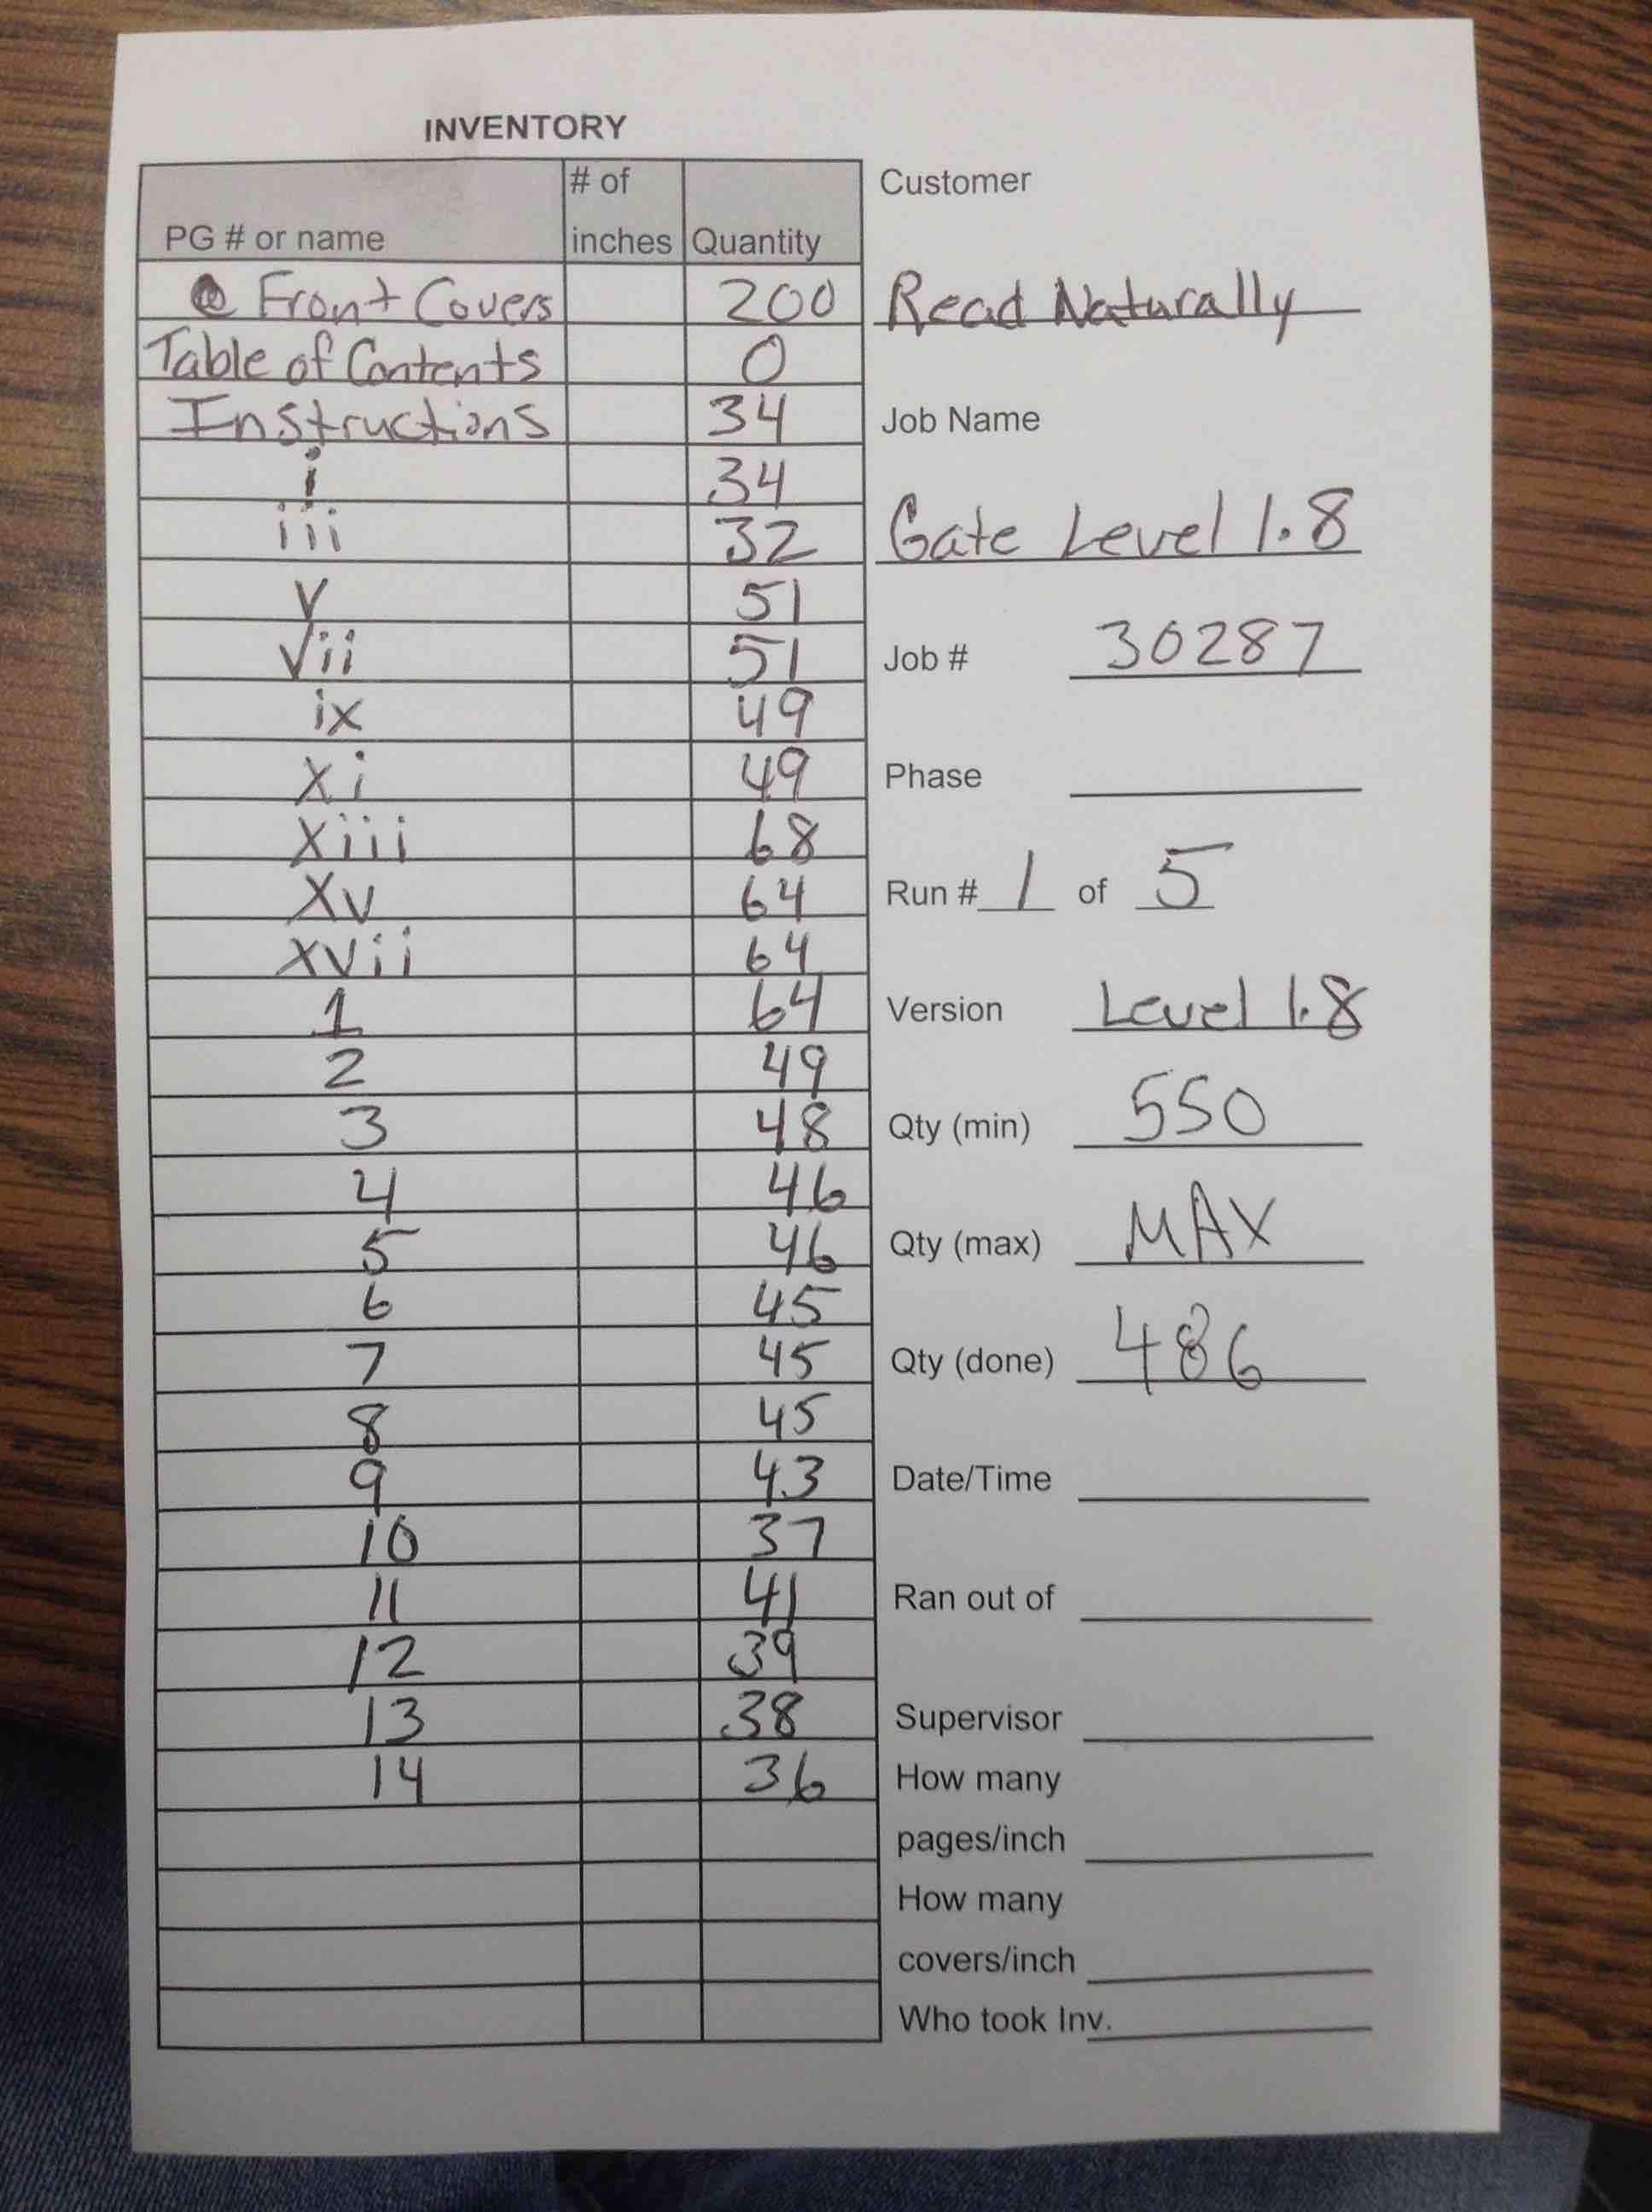 INVENTORY
PG # or name # of inches Quantity
Front Covers 200
Table of Contents 0
Instructions 34
i 34
iii 32
v 51
vii 51
ix 49
xi 49
xiii 68
xv 64
xvii 64
1 64
2 49
3 48
4 46
5 46
6 45
7 45
8 45
9 43
10 37
11 41
12 39
13 38
14 36
Customer
Read Naturally
Job Name
Gate Level 1.8
Job # 30287
Phase
Run # 1 of 5
Version Level 1.8
Qty (min) 550
Qty (max) MAX
Qty (done) 486
Date/Time
Ran out of
Supervisor
How many
pages/inch
How many
covers/inch
Who took Inv.